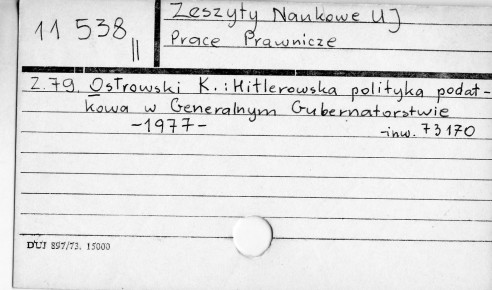 11 538 II
Zeszyty Naukowe UJ
Prace Prawnicze
Z. 79. Ostrowski K.: Hitlerowska polityka podat-
kowa w Generalnym Gubernatorstwie
-1977-
-inw. 73170
DUJ 897/73. 15000